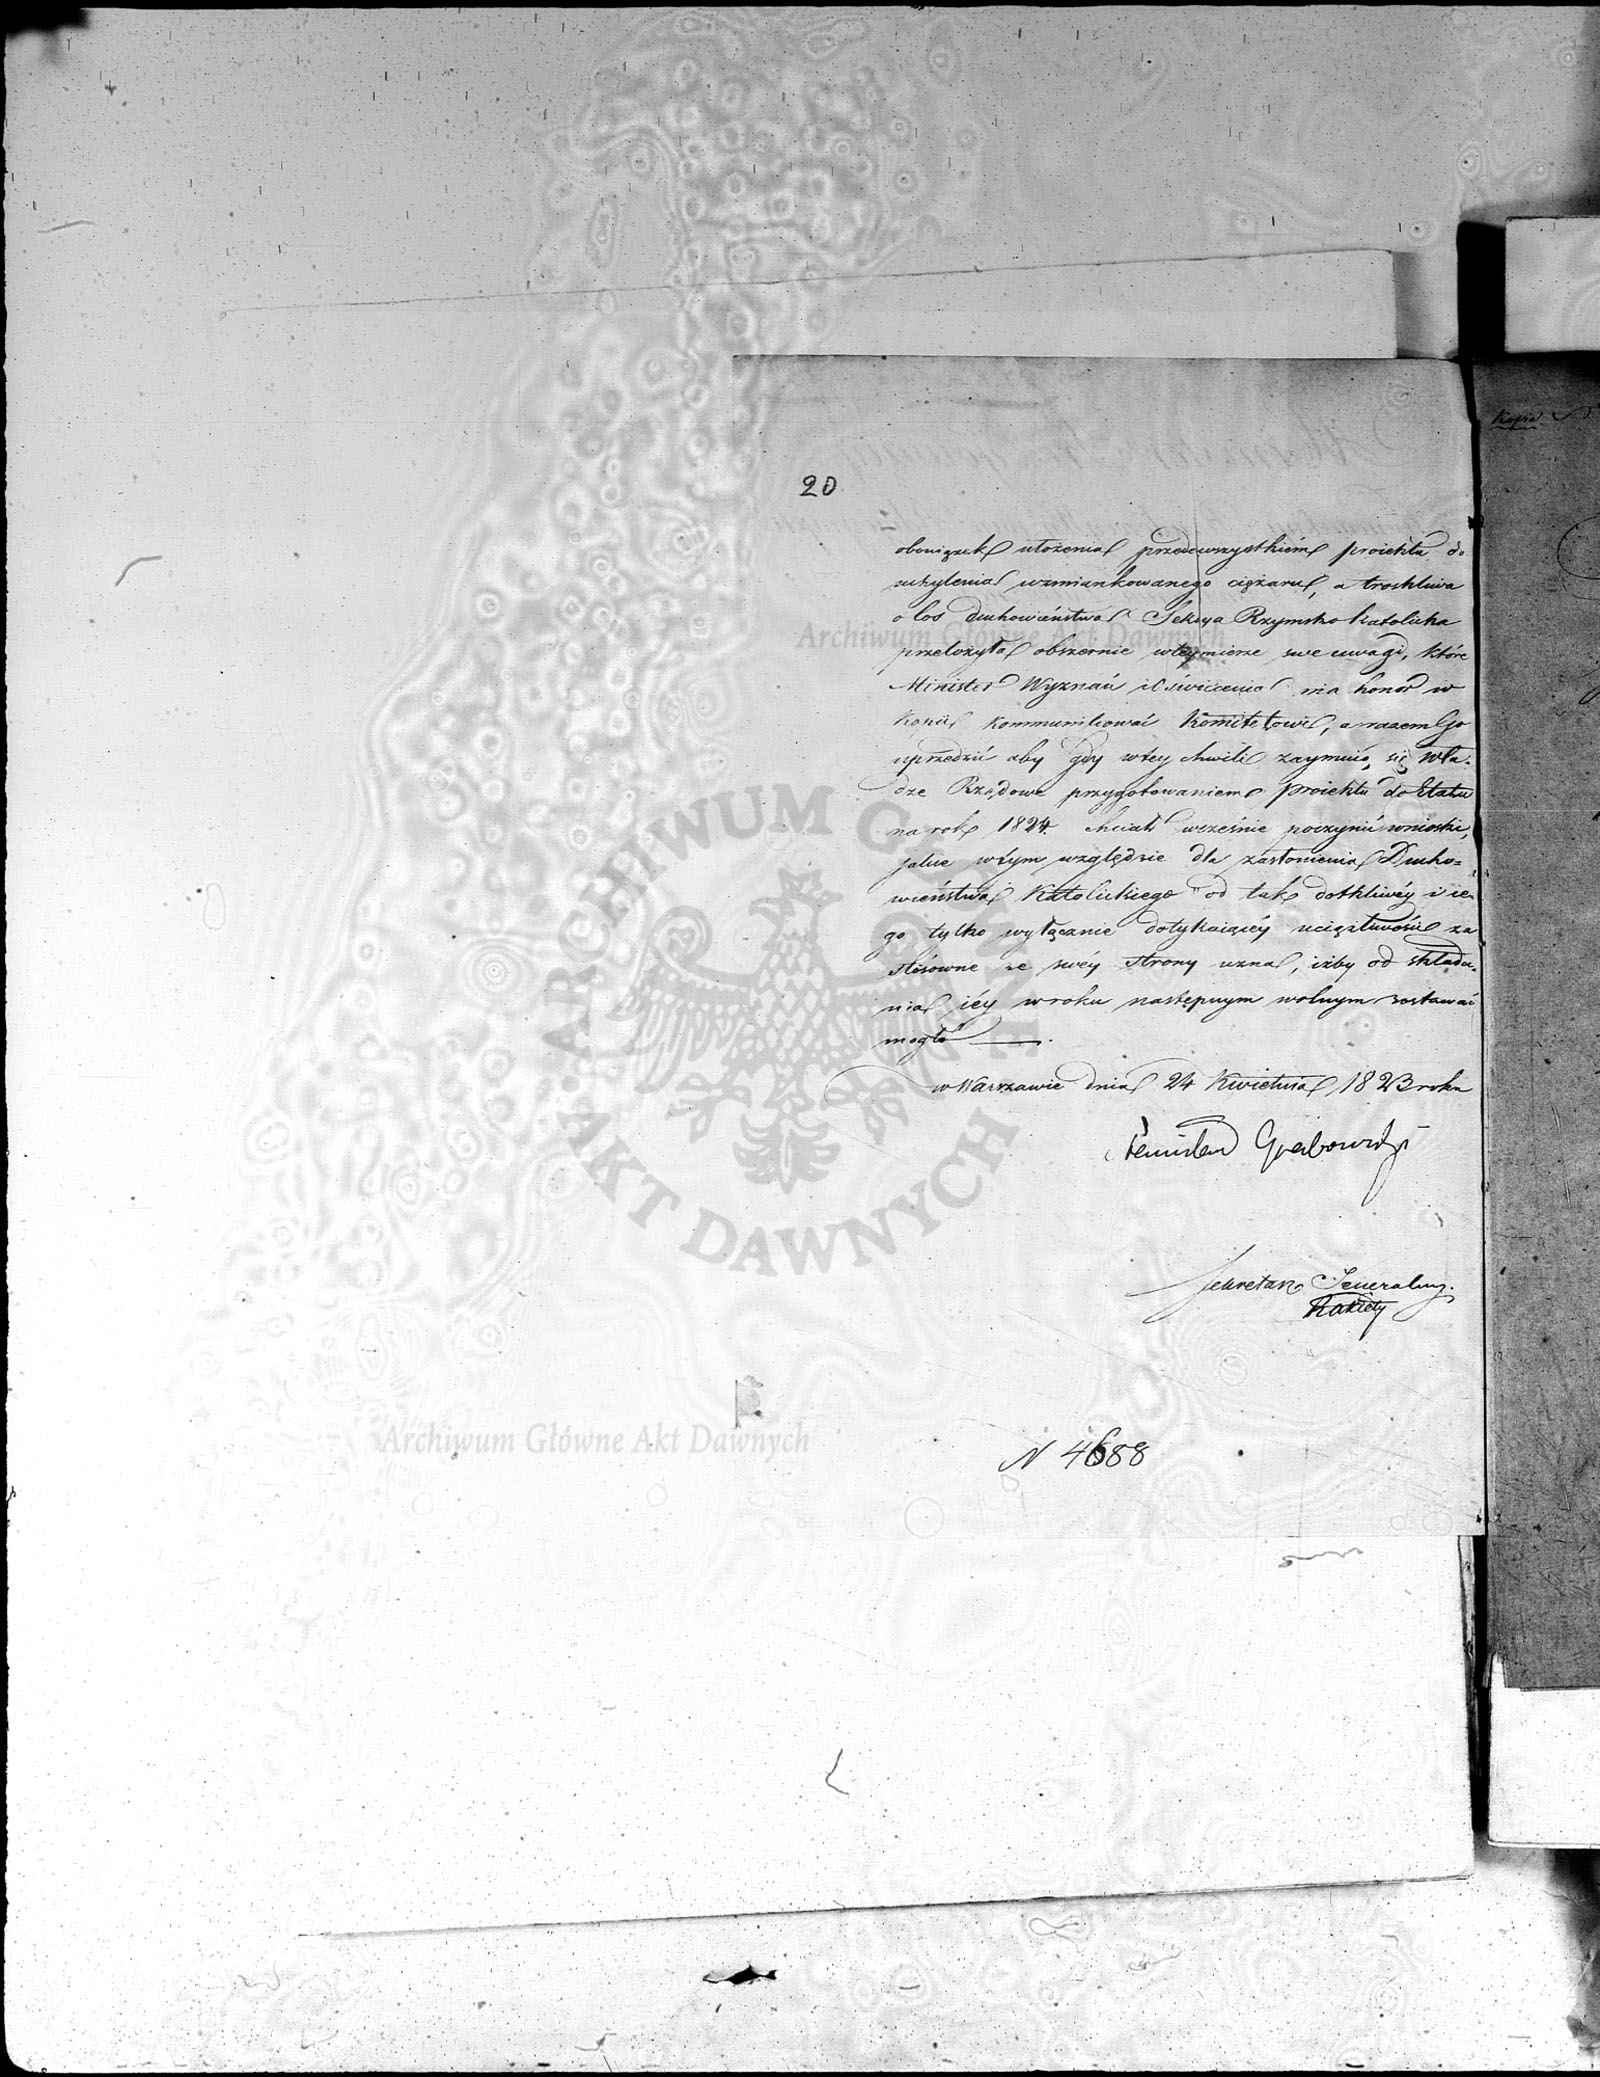 20
obowiązek ułożenia przedewszystkiém proiektu do
uchylenia wzmiankowanego ciężaru, a troskliwa
o los duchowieństwa Sekcya Rzymsko Katolicka
przełożyła obszernie wtéymierze swe uwagi, które
Minister Wyznań i Oświecenia ma honor w
Kopii kommunikować Komitetowi, a razem Go
uprzedzić aby gdy wtey chwili zaymuią się Wła-
dze Rządowe przygotowaniem proiektu do Etatu
na rok 1824. chciał wcześnie poczynić wnioski,
jakie wtym względzie dla zasłonienia Ducho=
wieństwa Katolickiego od tak dotkliwéy i ie-
go tylko wyłącznie dotykaiącéy uciążliwości za
stósowne ze swéy strony uzna, iżby od składa-
nia iéy w roku następnym wolnym zostawać
mogło.
w Warszawie dnia 24 Kwietnia 1823 roku
Stanisław Grabowski
Sekretarz Jeneralny.
N 4688
Kopia
Archiwum Główne Akt Dawnych
Archiwum Główne Akt Dawnych
ARCHIWUM GŁÓWNE AKT DAWNYCH